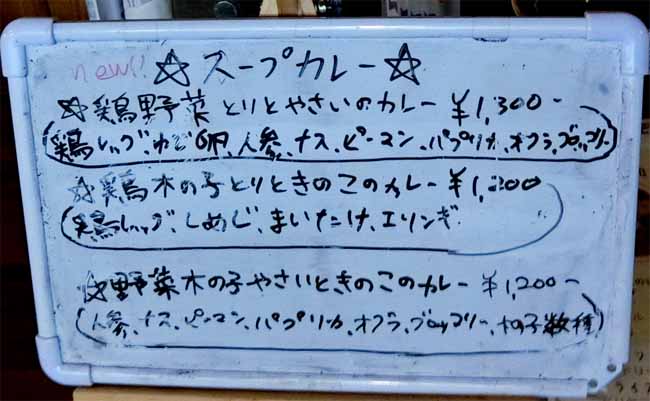 new!! ☆スープカレー☆
☆鶏野菜とりとやさいのカレー ¥1,300-
鶏レッグ、ゆで卵、人参、ナス、ピーマン、パプリカ、オクラ、ブロッコリー
☆鶏木の子とりときのこのカレー ¥1,200
鶏レッグ、しめじ、まいたけ、エリンギ
☆野菜木の子やさいときのこのカレー ¥1,200-
人参、ナス、ピーマン、パプリカ、オクラ、ブロッコリー、木の子数種